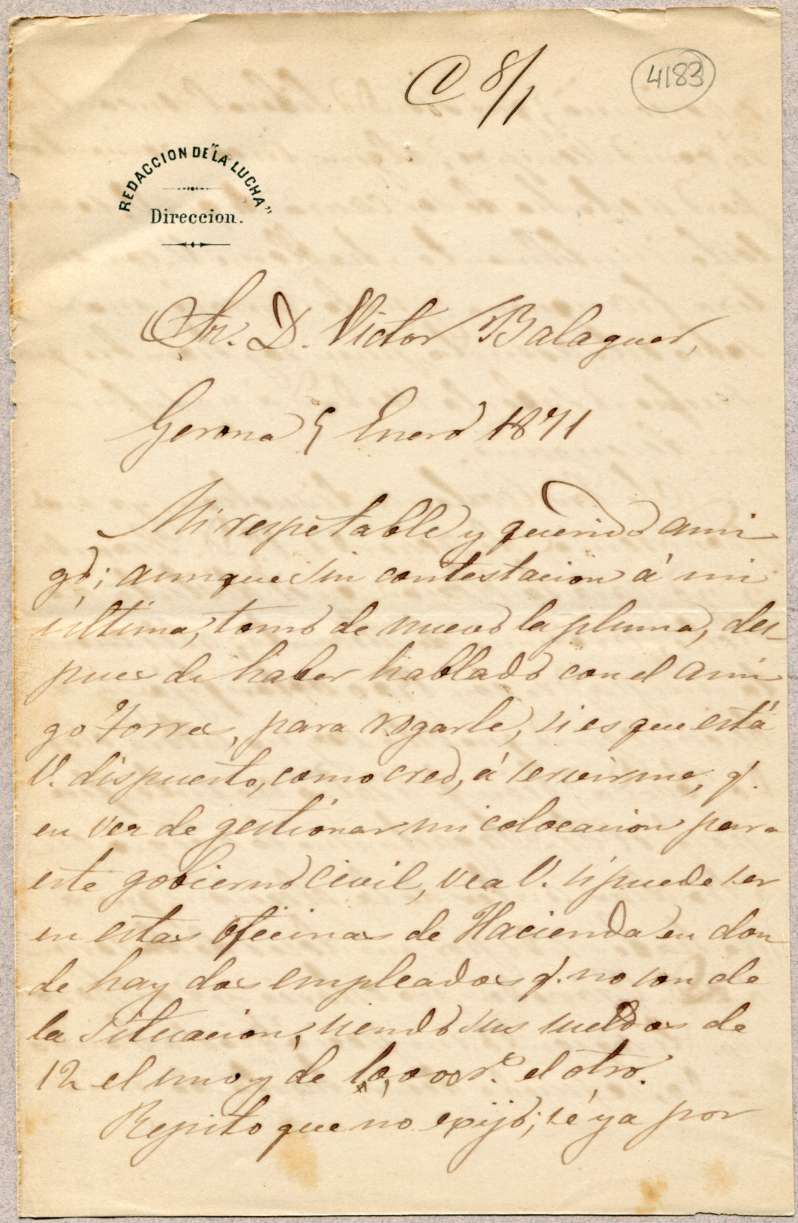 C 8/1
4183
REDACCION DE "LA LUCHA"
Direccion.
Sr. D. Victor Balaguer,
Gerona 5 Enero 1871
Mi respetable y querido ami-
go; aunque sin contestacion á mi
última, tomo de nuevo la pluma, des-
pues de haber hablado con el ami-
go Torres, para rogarle, si es que está
V. dispuesto, como creo, á servirme, q.
en vez de gestionar mi colocacion para
este gobierno civil, vea V. si puede ser
en estas oficinas de Hacienda en don-
de hay dos empleados q. no son de
la situacion, siendo sus sueldos de
12 el uno y de 10,000 r.s el otro.
Repito que no exijo; sé ya por